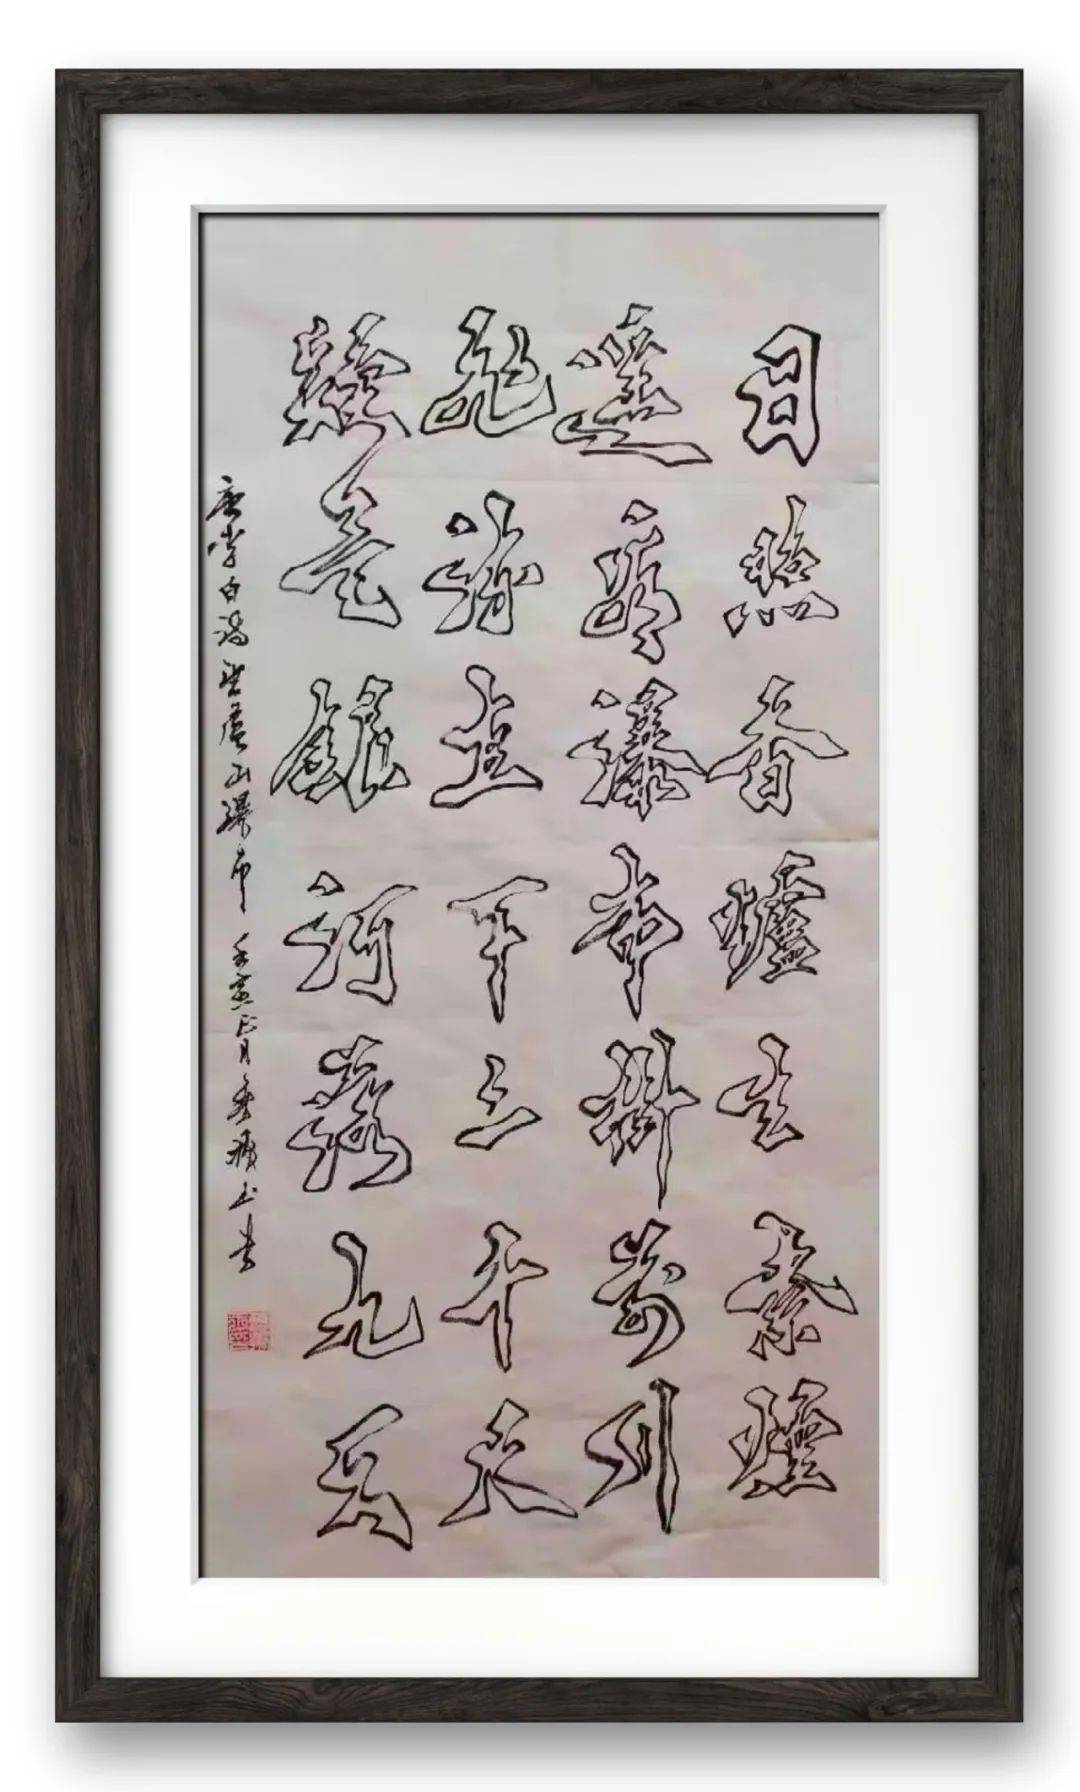 日照香爐生紫煙
遙看瀑布掛前川
飛流直下三千尺
疑是銀河落九天
唐李白詩望廬山瀑布 壬寅正月 書